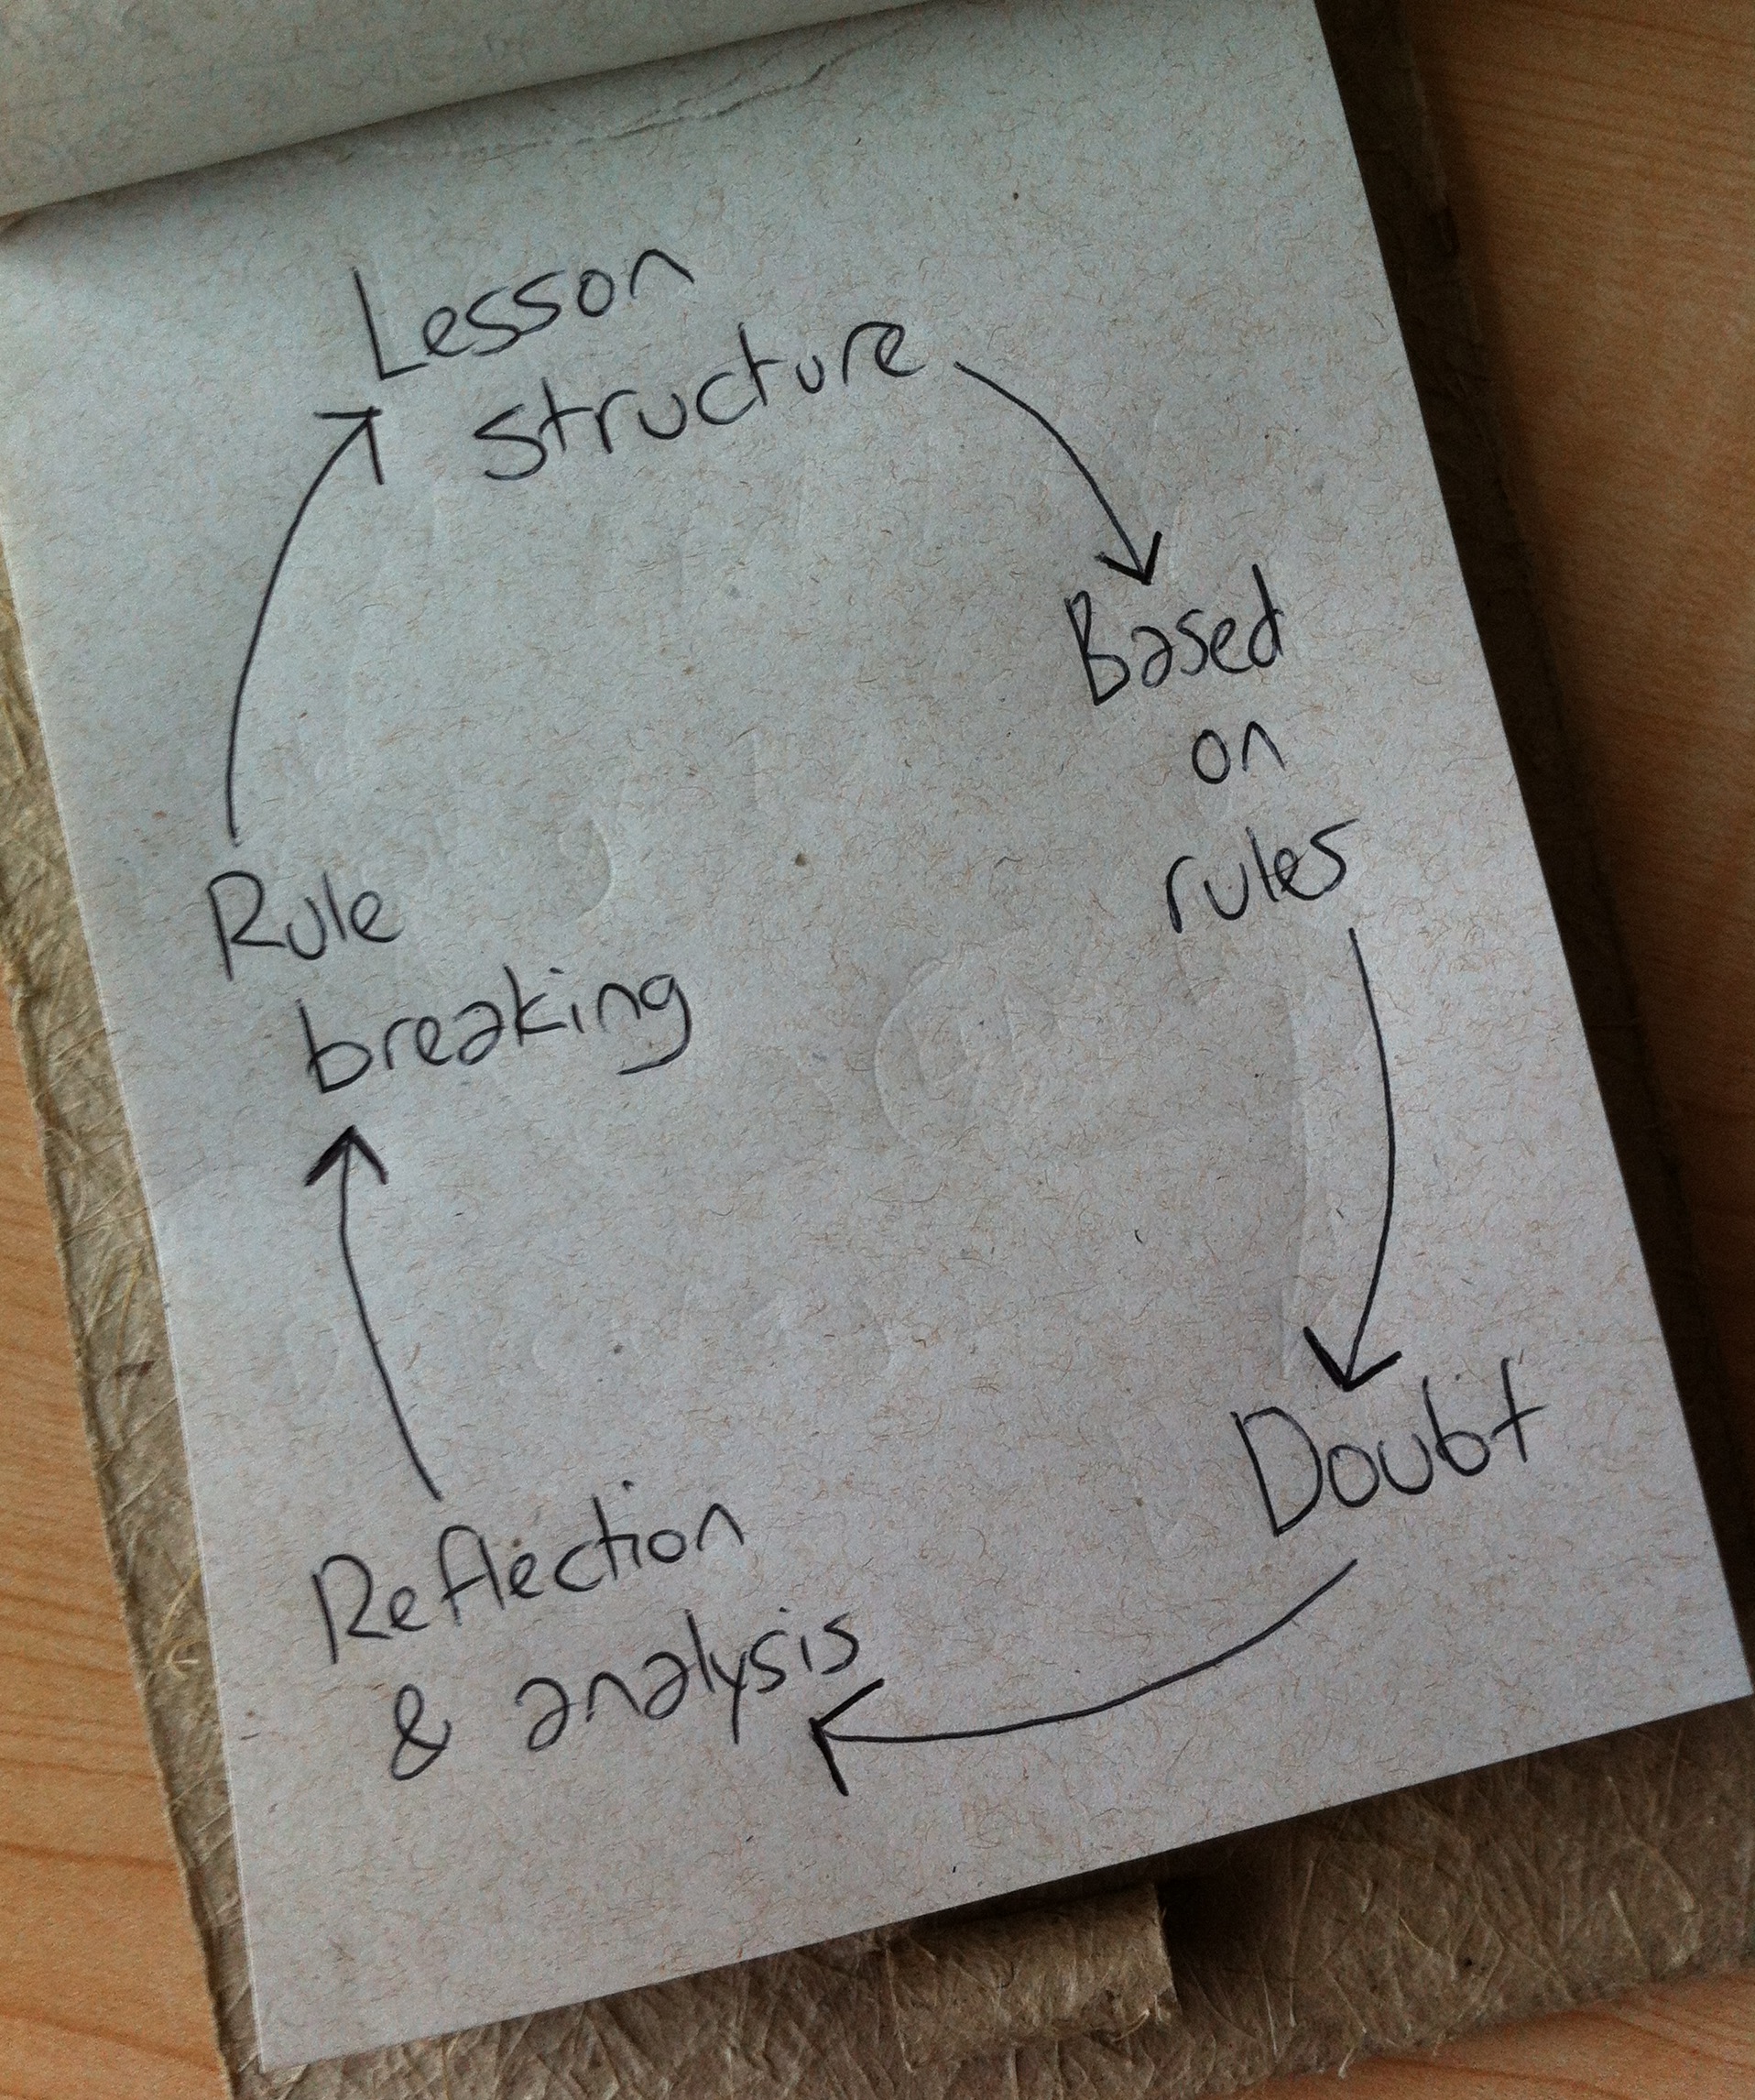 Lesson
structure
Based
on
rules
Doubt
Reflection
& analysis
Rule
breaking